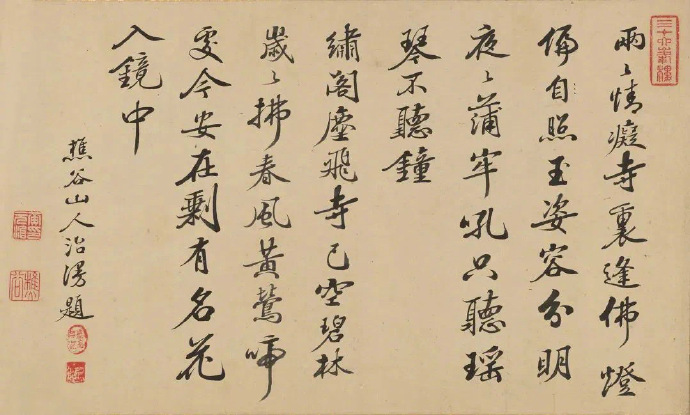 兩〻情癡寺裏逢佛燈
偏自照玉姿容分明
夜〻蒲牢吼只聽瑶
琴不聽鐘
繡閣塵飛寺已空碧林
歲〻拂春風黄鶯啼
處今安在剩有名花
入鏡中
樵谷山人治漫題